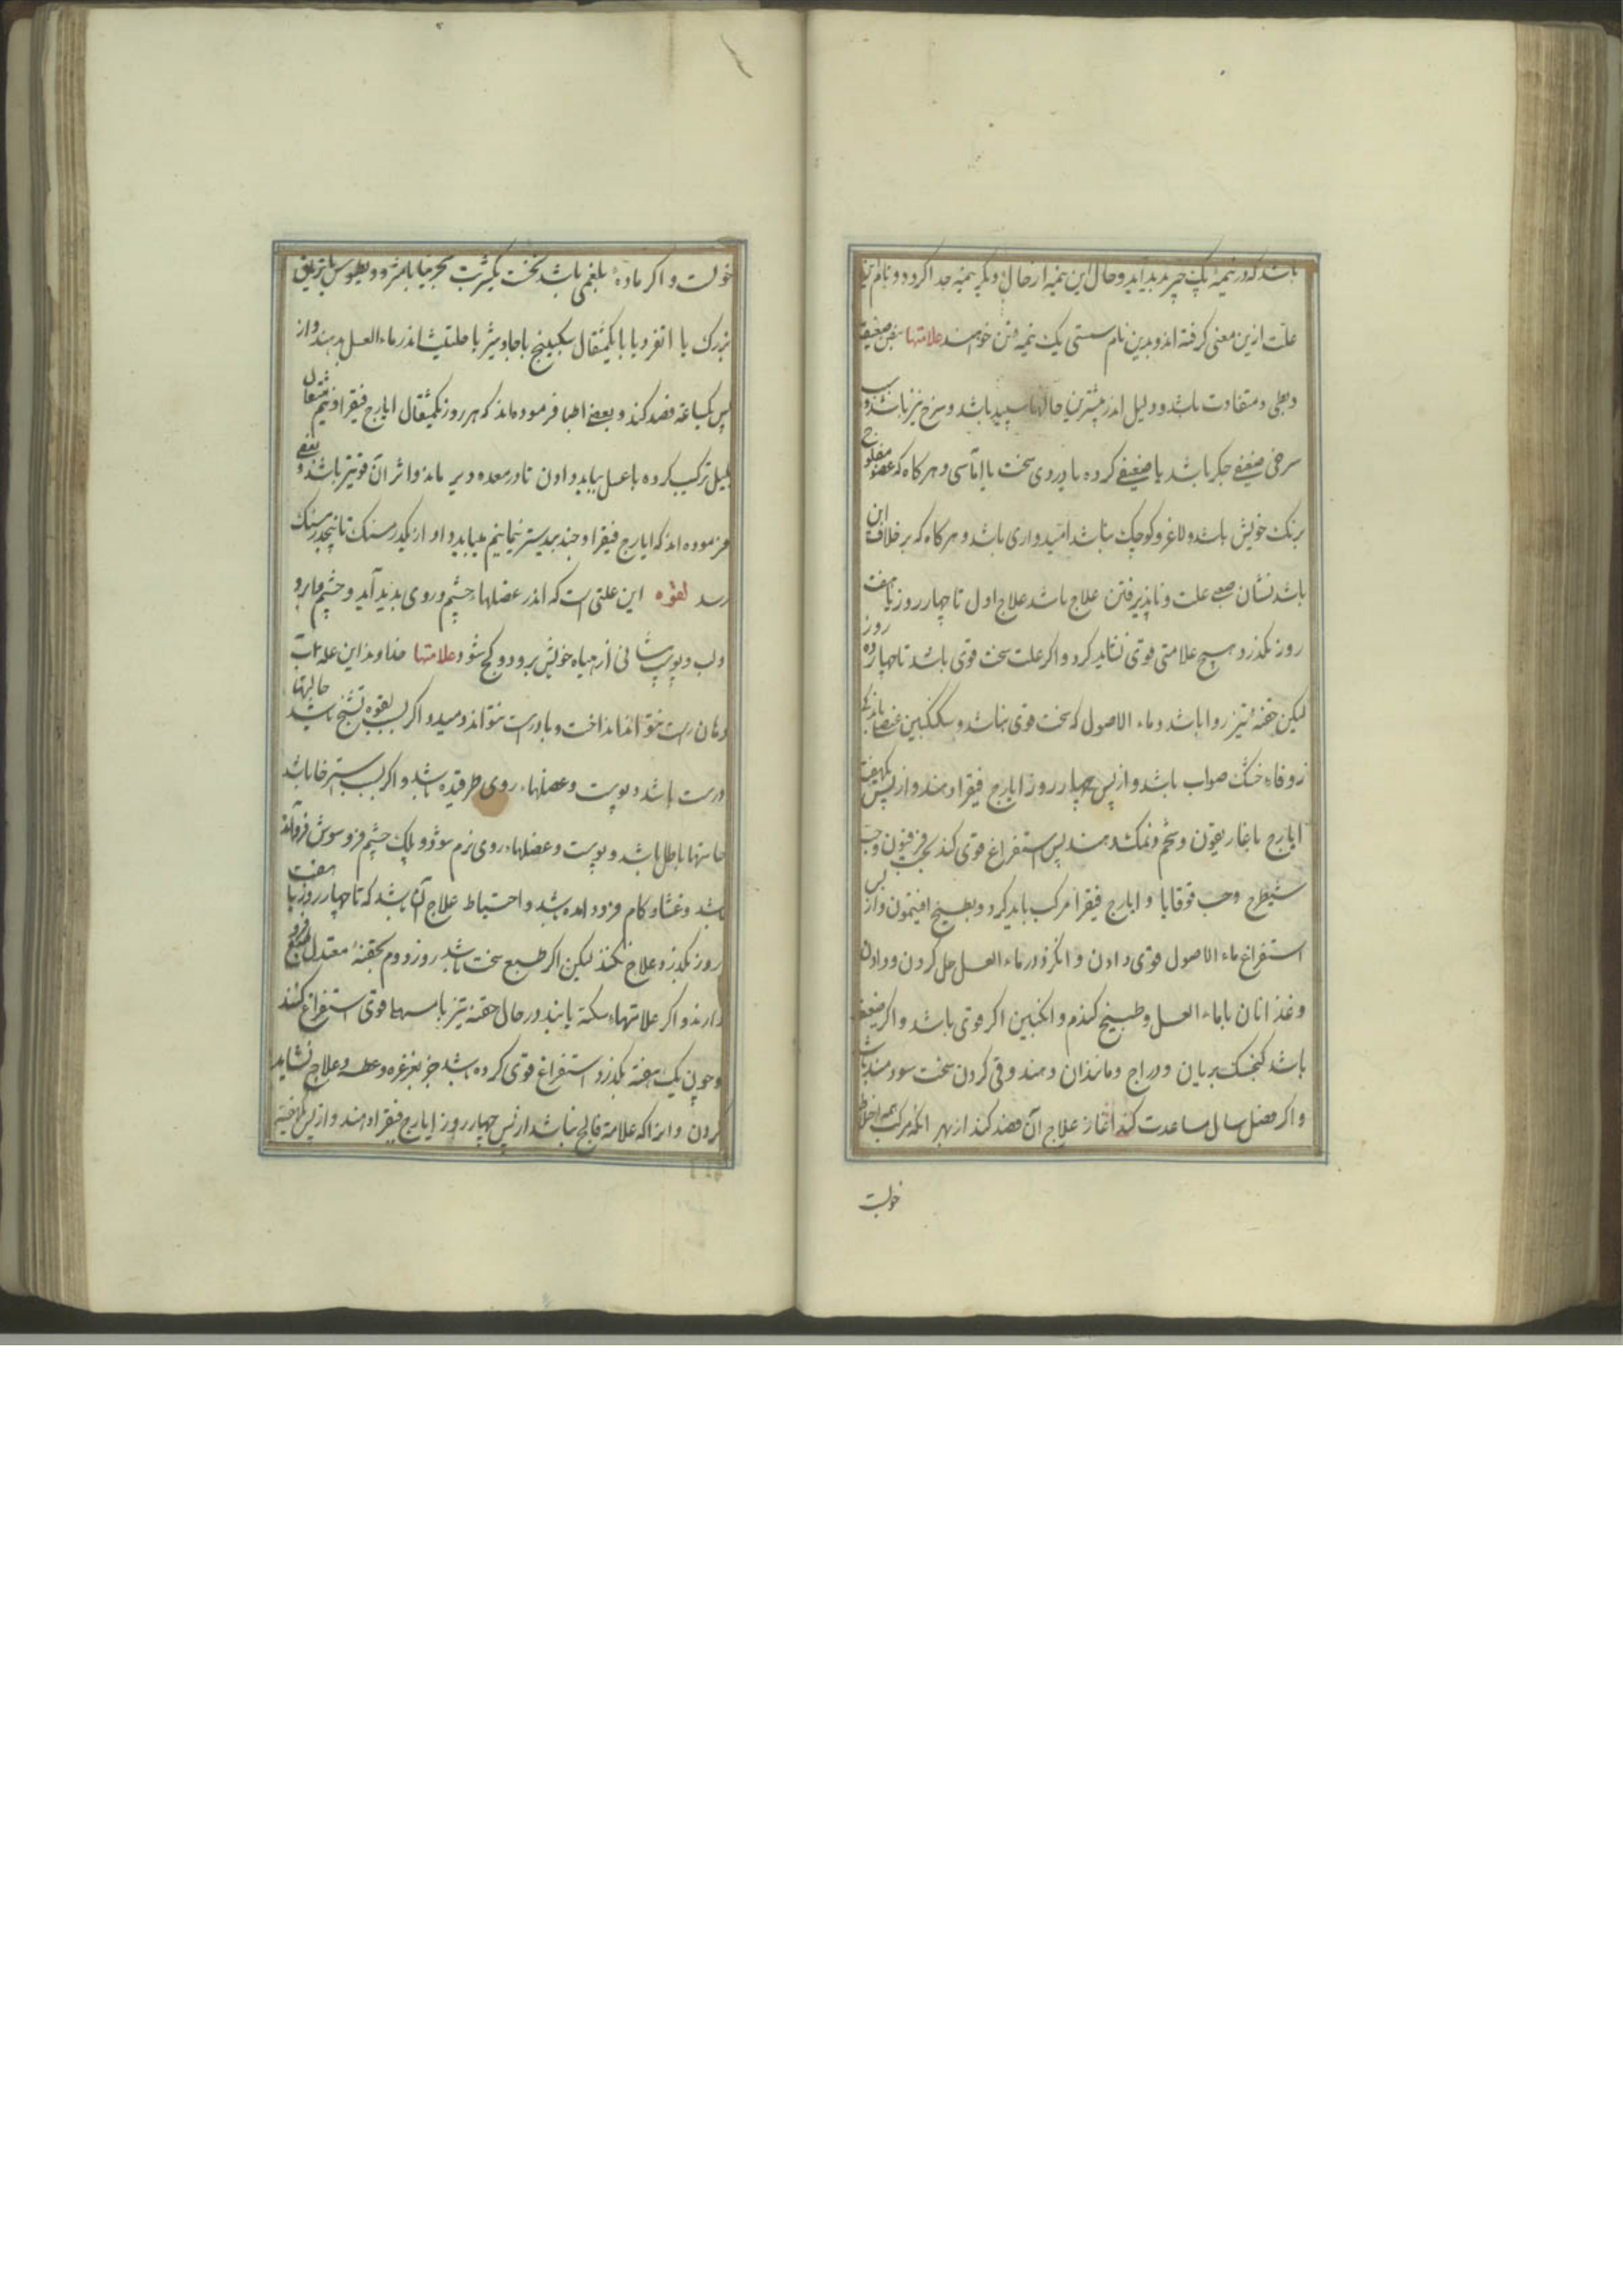 باشد که در نیمهٔ یک چیز پدید آید و حال این نیمه از حال دیگر نیمه جدا کردد و نام این
علت ازین معنی کرفته اند و بدین نام سستی یک نیمهٔ تن خواهند علامتها نبض ضعیف
و بطی و متفاوت باشد و دلیل اندر بیشترین حالها سپید باشد و سرخ نیز باشد و سبب
سرخی ضعیفی جکر باشد یا ضعیفی کرده یا دردی سخت یا آماسی و هر کاه که عضو مفلوج
برنک خویش باشد و لاغر و کوچک نباشد امیدواری باشد و هر کاه که بر خلاف این
باشد نشان صعبی علت و ناپذیرفتن علاج باشد علاج اول تا چهار روز یا هفت
روز نکذرد هیچ علامتی قوی نشاید کرد و اکر علت سخت قوی باشد تا چهارده روز
لیکن حقنهٔ تیز روا باشد و ماء الاصول که سخت قوی نباشد و سکنکبین عنصلی
زوفاء خشک صواب باشد و از پس چهار روز ایارج فیقرا دهند و از پس یکهفته
ایارج با غاریقون و شحم و نمک دهند پس استفراغ قوی کند بحب فرفیون و حب
شیطرج و حب قوقایا و ایارج فیقرا مرکب باید کرد و بطبیخ افتیمون و از پس
استفراغ ماء الاصول قوی دادن و انکژد در ماء العسل حل کردن و دادن
و غذا نان با ماء العسل و طبیخ کندم و انکبین اکر قوی باشد و اکر ضعیف
باشد کنجشک بریان و دراج و مانند آن دهند و قی کردن سخت سودمند باشد
و اکر فصل سال مساعدت کند آغاز علاج آن فصد کند از بهر آنکه مرکب همه اخلاط
خونست
خونست و اکر مادهٔ بلغمی باشد نخست یکشربت شجرینا یا مثرودیطوس یا تریاق
بزرک یا انقردیا یا یکمثقال سکبینج یا جاوشیر یا حلتیت اندر ماء العسل بدهند و از
پس یکساعته فصد کند و بعضی اطبا فرموده اند که هر روز یکمثقال ایارج فیقرا و نیم مثقال
پلپل ترکیب کرده با عسل بباید دادن تا در معده دیر ماند و اثر آن قویتر باشد و بعضی
فرموده اند که ایارج فیقرا و جندبیدستر نیمانیم بباید داد از یکدرمسنک تا پنجدرمسنک
رسد لقوه این علتی است که اندر عضلهاء چشم و روی پدید آید و چشم و ابرو
و لب و پوست پیشانی از نهاد خویش برود و کج شود علامتها خداوند این علت آب
دهان راست نتواند انداخت و باد راست نتواند دمید و اکر بسبب لقوه تشنج باشد حالتها
درست باشد و پوست و عضلهاء روی طرقیده باشد و اکر بسبب استرخا باشد
حاستها باطل باشد و پوست و عضلهاء روی نرم شود و پلک چشم فرو سوش فرو آمده
باشد و غشاء کام فرود آمده باشد و احتیاط علاج آن باشد که تا چهار روز یا هفت
روز نکذرد علاج نکنند لیکن اکر طبع سخت باشد روز دوم بحقنهٔ معتدل طبع فرود
آرند و اکر علامتهاء سکته یابند در حال حقنهٔ تیز یا مسهل قوی استفراغ کنند
و چون یک هفته بکذرد استفراغ قوی کرده باشد جز بغرغره و عطسه و علاج نشاید
کردن و انرا که علامت فالج نباشد از پس چهار روز ایارج فیقرا دهند و از پس یکهفته